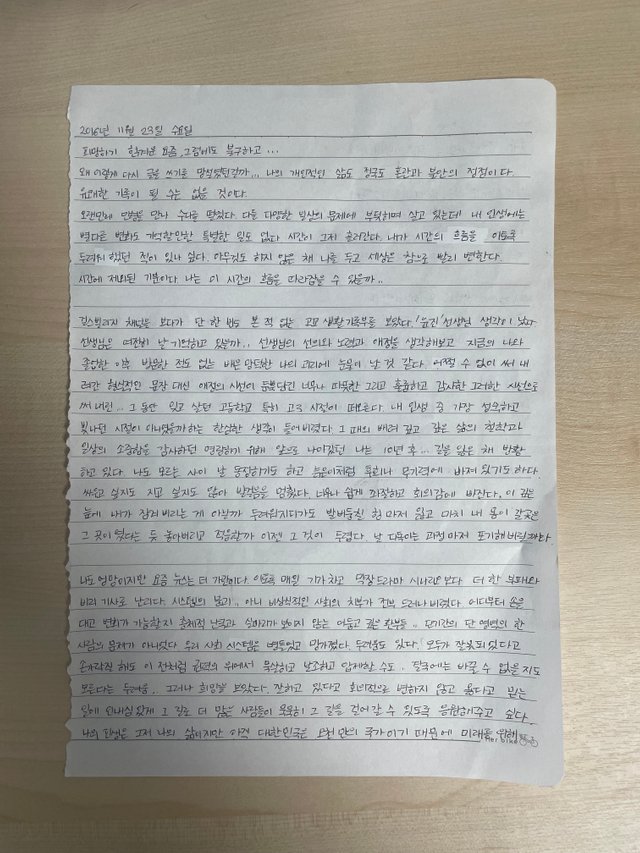 2016년 11월 23일 수요일
희망하기 힘겨운 요즘, 그럼에도 불구하고 ...
왜 이렇게 다시 글을 쓰기를 망설였던걸까... 나의 개인적인 삶도 정국도 혼란과 불안의 정점이다.
유쾌한 기록이 될 수는 없을 것이다.
오랜만에 만나 수다를 떨었다. 다들 다양한 일상의 문제에 부딪히며 살고 있는데 내 인생에는
별다른 변화도 기억할만한 특별한 일도 없다. 시간이 그저 흘러간다. 내가 시간의 흐름을 이토록
두려워 했던 적이 있나 싶다. 아무것도 하지 않은 채 나를 두고 세상은 참으로 빨리 변한다.
시간에 제외된 기분이다. 나는 이 시간의 흐름을 따라잡을 수 있을까..
채널을 보다가 단 한 번도 본 적 없는 고교 생활기록부를 보았다. 선생님 생각이 났다
선생님은 여전히 날 기억하고 있을까.. 선생님의 선의와 노력과 애정을 생각해보고 지금의 나와
졸업한 이후 방문한 적도 없는 나의 눈물이 날 것 같다. 어쩔 수 없이 써 내
려간 형식적인 문장 대신 애정의 시선이 듬뿍담긴 너무나 따뜻한 그리고 훌륭하고 감사한 그러한 시선으로
써 내린... 그동안 잊고 살던 고등학교 특히 고3 시절이 떠오른다. 내 인생 중 가장 성숙하고
빛나던 시절이 아니었을까하는 한심한 생각이 들어버렸다. 그 때의 깊은 삶의 철학과
일상의 소중함을 감사하던 앞으로 나아갔던 나는 10년 후... 길을 잃은 채 방황
하고 있다. 나도 모르는 사이 날 하기도 하고 무기력에 빠져 있기도 하다.
싸우고 싶지도 지고 싶지도 않아 발걸음을 멈췄다. 너무나 쉽게 좌절하고 회의감에 빠진다. 이 깊은
늪에 내가 잠겨버리는 게 아닐까 두려워지다가도 발버둥칠 힘마저 잃고 마치 내 몸이 같은
그 곳이었다는 듯 놓아버리고 적응할까 이젠 그것이 두렵다. 날 다독이는 과정마저 포기해버릴까봐.
나도 엉망이지만 요즘 뉴스는 더 가관이다. 이토록 매일 기가차고 막장드라마 시나리오보다 더 한 부패와
비리 기사로 난리다. 시스템의 붕괴.. 아니 비상식적인 사회의 치부가 전부 드러나버렸다. 어디부터 손을
대고 변화가 가능할지 총체적 난국과 실마리가 보이지 않는 어둡고 깊은 환부들.. 단기간의 단 영역의 한
사람의 문제가 아니었다. 우리 사회 시스템은 병들었고 망가졌다. 두려움도 있다. 모두가 잘못되었다고
손가락질 해도 이전처럼 위에서 묵살하고 날조하고 압제할 수도.. 결국에는 바꿀 수 없을지도
모른다는 두려움.. 그러나 희망을 보았다. 잘하고 있다고 회의적으로 변하지 않고 옳다고 믿는
일에 인내심있게 그 길로 더 많은 사람들이 묵묵히 그 길을 걸어갈 수 있도록 응원해주고 싶다.
나의 인생은 그저 나의 삶이지만 아직 대한민국은 오천만의 국가이기 때문에 미래를 위해